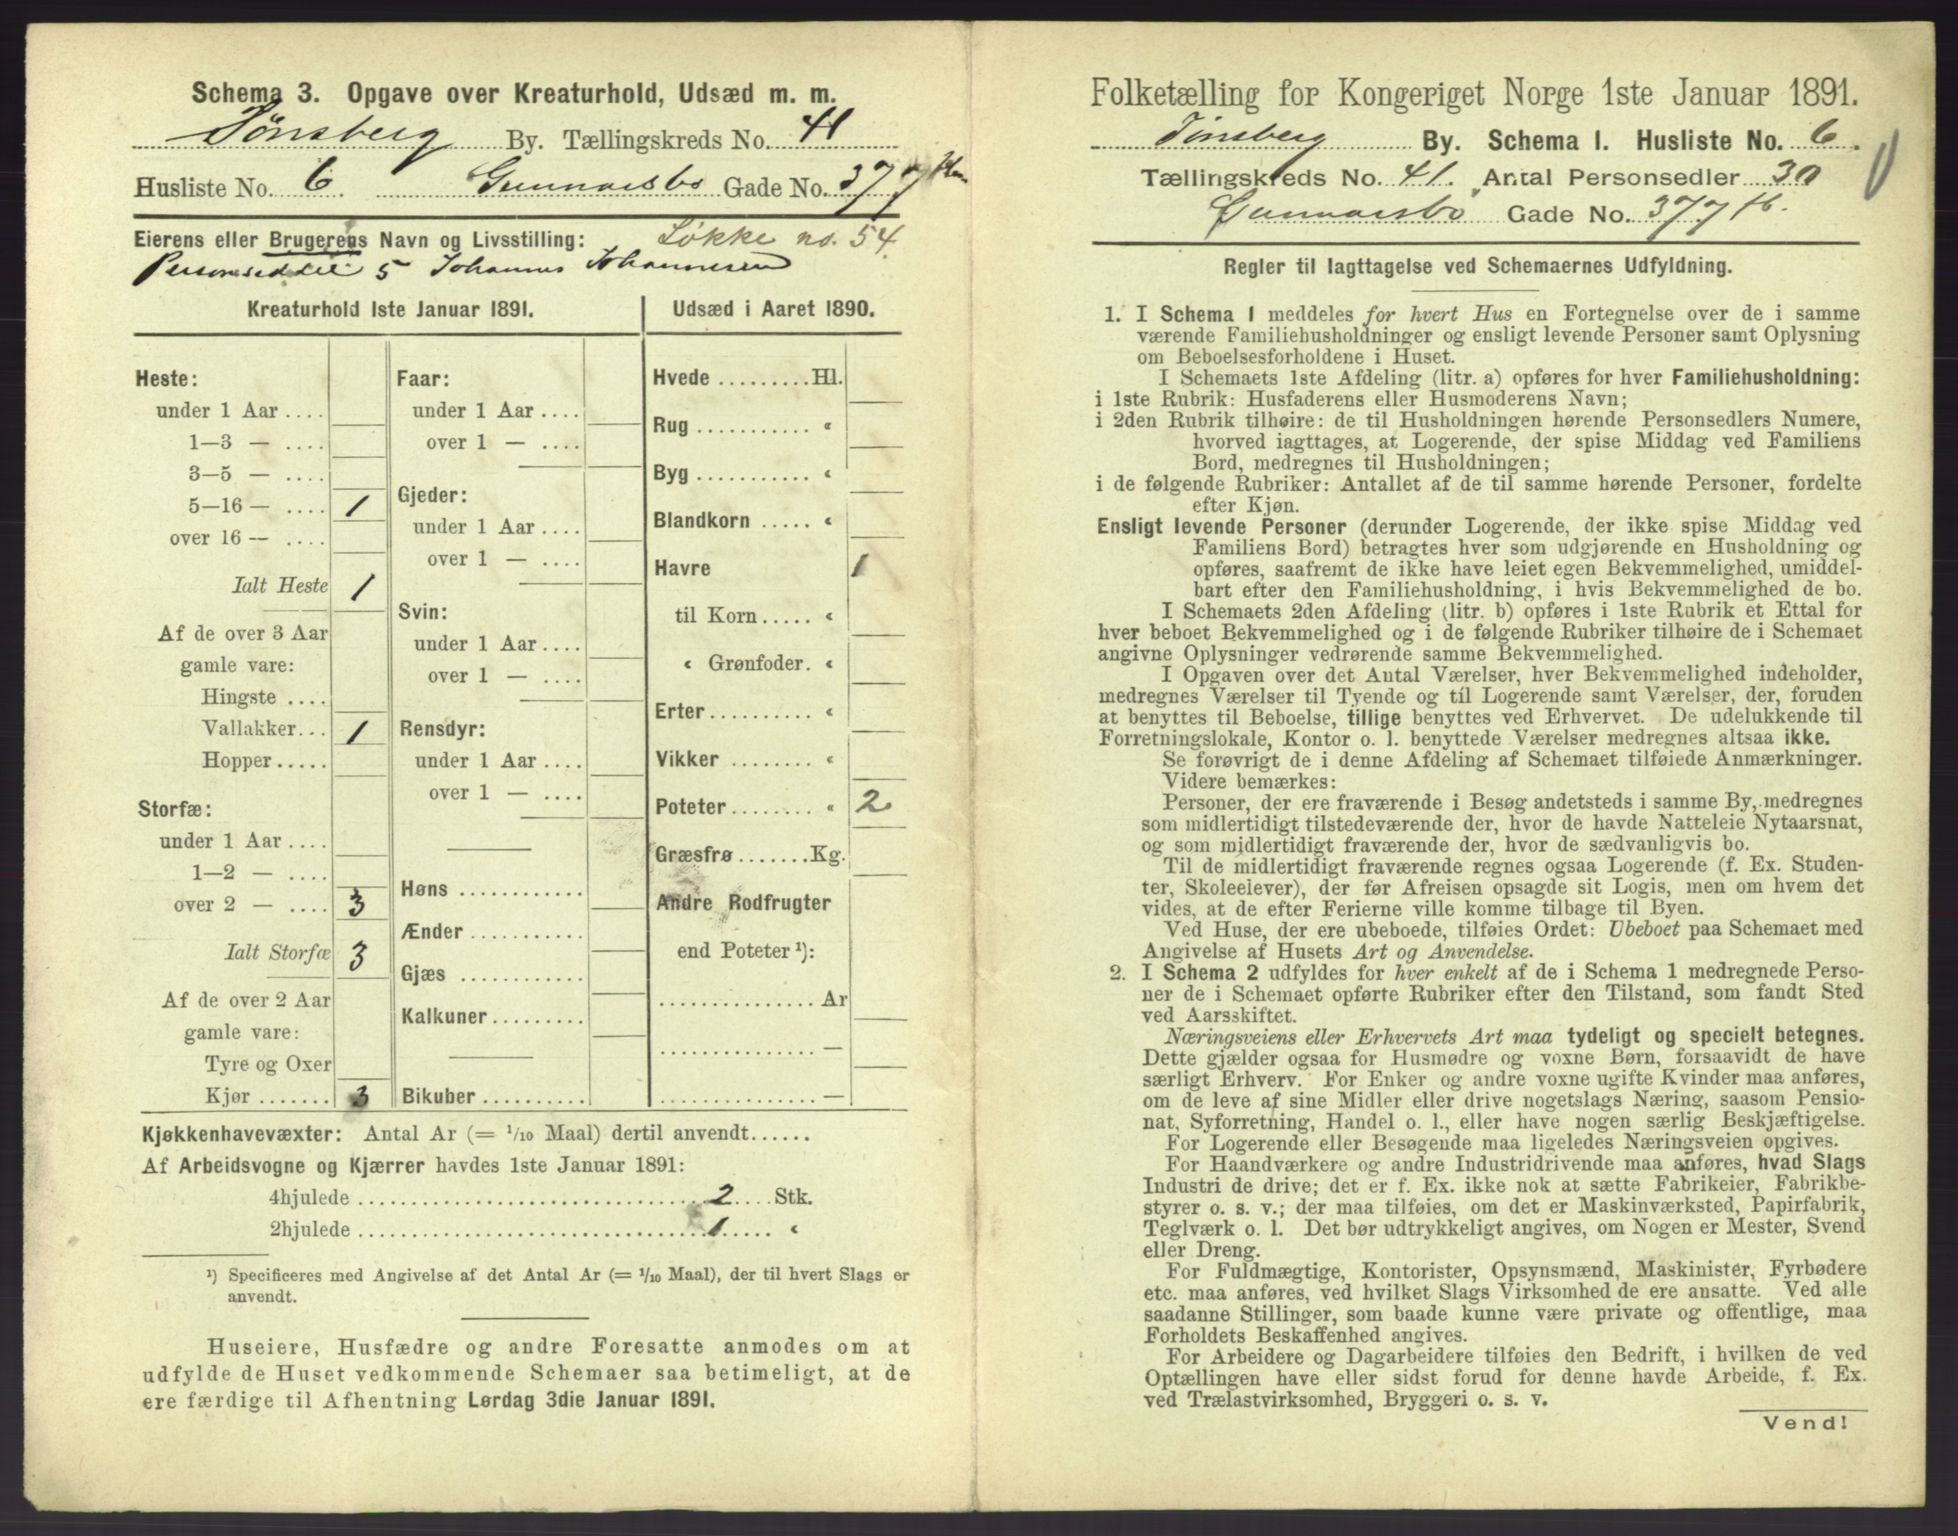 Schema 3. Opgave over Kreaturhold, Udsæd m. m.
Tønsberg By. Tællingskreds No. 41
Husliste No. 6 Gunnarsbø Gade No. 377
Eierens eller Brugerens Navn og Livsstilling: Løkke no. 54.
Personseddel 5 Johannes Johannesen
Kreaturhold 1ste Januar 1891.
Heste:
under 1 Aar ....
1—3 — ....
3—5 — ....
5—16 — .... 1
over 16 — ....
Ialt Heste 1
Af de over 3 Aar
gamle vare:
Hingste ....
Vallakker... 1
Hopper .....
Storfæ:
under 1 Aar ....
1—2 — ....
over 2 — .... 3
Ialt Storfæ 3
Af de over 2 Aar
gamle vare:
Tyre og Oxer
Kjør ....... 3
Faar:
under 1 Aar ....
over 1 — ....
Gjeder:
under 1 Aar ....
over 1 — ....
Svin:
under 1 Aar ....
over 1 — ....
Rensdyr:
under 1 Aar ....
over 1 — ....
Høns ............
Ænder ...........
Gjæs ............
Kalkuner .........
Bikuber ..........
Udsæd i Aaret 1890.
Hvede .........Hl.
Rug ........... «
Byg ........... «
Blandkorn ..... «
Havre 1
til Korn ..... «
« Grønfoder. «
Erter .......... «
Vikker ........ «
Poteter ........ « 2
Græsfrø .......Kg.
Andre Rodfrugter
end Poteter ¹):
............... Ar
............... —
............... —
Kjøkkenhavevæxter: Antal Ar (= 1/10 Maal) dertil anvendt......
Af Arbeidsvogne og Kjærrer havdes 1ste Januar 1891:
4hjulede .................... 2 .... Stk.
2hjulede .................... 1 ..... «
¹) Specificeres med Angivelse af det Antal Ar (= 1/10 Maal), der til hvert Slags er
anvendt.
Huseiere, Husfædre og andre Foresatte anmodes om at
udfylde de Huset vedkommende Schemaer saa betimeligt, at de
ere færdige til Afhentning Lørdag 3die Januar 1891.
Folketælling for Kongeriget Norge 1ste Januar 1891.
Tønsberg By. Schema I. Husliste No. 6.
Tællingskreds No. 41. Antal Personsedler 30
Gunnarsbø Gade No. 377 H.
Regler til Iagttagelse ved Schemaernes Udfyldning.
1. I Schema I meddeles for hvert Hus en Fortegnelse over de i samme
værende Familiehusholdninger og ensligt levende Personer samt Oplysning
om Beboelsesforholdene i Huset.
I Schemaets 1ste Afdeling (litr. a) opføres for hver Familiehusholdning:
i 1ste Rubrik: Husfaderens eller Husmoderens Navn;
i 2den Rubrik tilhøire: de til Husholdningen hørende Personsedlers Numere,
hvorved iagttages, at Logerende, der spise Middag ved Familiens
Bord, medregnes til Husholdningen;
i de følgende Rubriker: Antallet af de til samme hørende Personer, fordelte
efter Kjøn.
Ensligt levende Personer (derunder Logerende, der ikke spise Middag ved
Familiens Bord) betragtes hver som udgjørende en Husholdning og
opføres, saafremt de ikke have leiet egen Bekvemmelighed, umiddel-
bart efter den Familiehusholdning, i hvis Bekvemmelighed de bo.
I Schemaets 2den Afdeling (litr. b) opføres i 1ste Rubrik et Ettal for
hver beboet Bekvemmelighed og i de følgende Rubriker tilhøire de i Schemaet
angivne Oplysninger vedrørende samme Bekvemmelighed.
I Opgaven over det Antal Værelser, hver Bekvemmelighed indeholder,
medregnes Værelser til Tyende og til Logerende samt Værelser, der, foruden
at benyttes til Beboelse, tillige benyttes ved Erhvervet. De udelukkende til
Forretningslokale, Kontor o. l. benyttede Værelser medregnes altsaa ikke.
Se forøvrigt de i denne Afdeling af Schemaet tilføiede Anmærkninger.
Videre bemærkes:
Personer, der ere fraværende i Besøg andetsteds i samme By, medregnes
som midlertidigt tilstedeværende der, hvor de havde Natteleie Nytaarsnat,
og som midlertidigt fraværende der, hvor de sædvanligvis bo.
Til de midlertidigt fraværende regnes ogsaa Logerende (f. Ex. Studen-
ter, Skoleelever), der før Afreisen opsagde sit Logis, men om hvem det
vides, at de efter Ferierne ville komme tilbage til Byen.
Ved Huse, der ere ubeboede, tilføies Ordet: Ubeboet paa Schemaet med
Angivelse af Husets Art og Anvendelse.
2. I Schema 2 udfyldes for hver enkelt af de i Schema 1 medregnede Perso-
ner de i Schemaet opførte Rubriker efter den Tilstand, som fandt Sted
ved Aarsskiftet.
Næringsveiens eller Erhvervets Art maa tydeligt og specielt betegnes.
Dette gjælder ogsaa for Husmødre og voxne Børn, forsaavidt de have
særligt Erhverv. For Enker og andre voxne ugifte Kvinder maa anføres,
om de leve af sine Midler eller drive nogetslags Næring, saasom Pensio-
nat, Syforretning, Handel o. l., eller have nogen særlig Beskjæftigelse.
For Logerende eller Besøgende maa ligeledes Næringsveien opgives.
For Haandværkere og andre Industridrivende maa anføres, hvad Slags
Industri de drive; det er f. Ex. ikke nok at sætte Fabrikeier, Fabrikbe-
styrer o. s. v.; der maa tilføies, om det er Maskinværksted, Papirfabrik,
Teglværk o. l. Det bør udtrykkeligt angives, om Nogen er Mester, Svend
eller Dreng.
For Fuldmægtige, Kontorister, Opsynsmænd, Maskinister, Fyrbødere
etc. maa anføres, ved hvilket Slags Virksomhed de ere ansatte. Ved alle
saadanne Stillinger, som baade kunne være private og offentlige, maa
Forholdets Beskaffenhed angives.
For Arbeidere og Dagarbeidere tilføies den Bedrift, i hvilken de ved
Optællingen have eller sidst forud for denne havde Arbeide, f. Ex.
ved Trælastvirksomhed, Bryggeri o. s. v.
Vend!